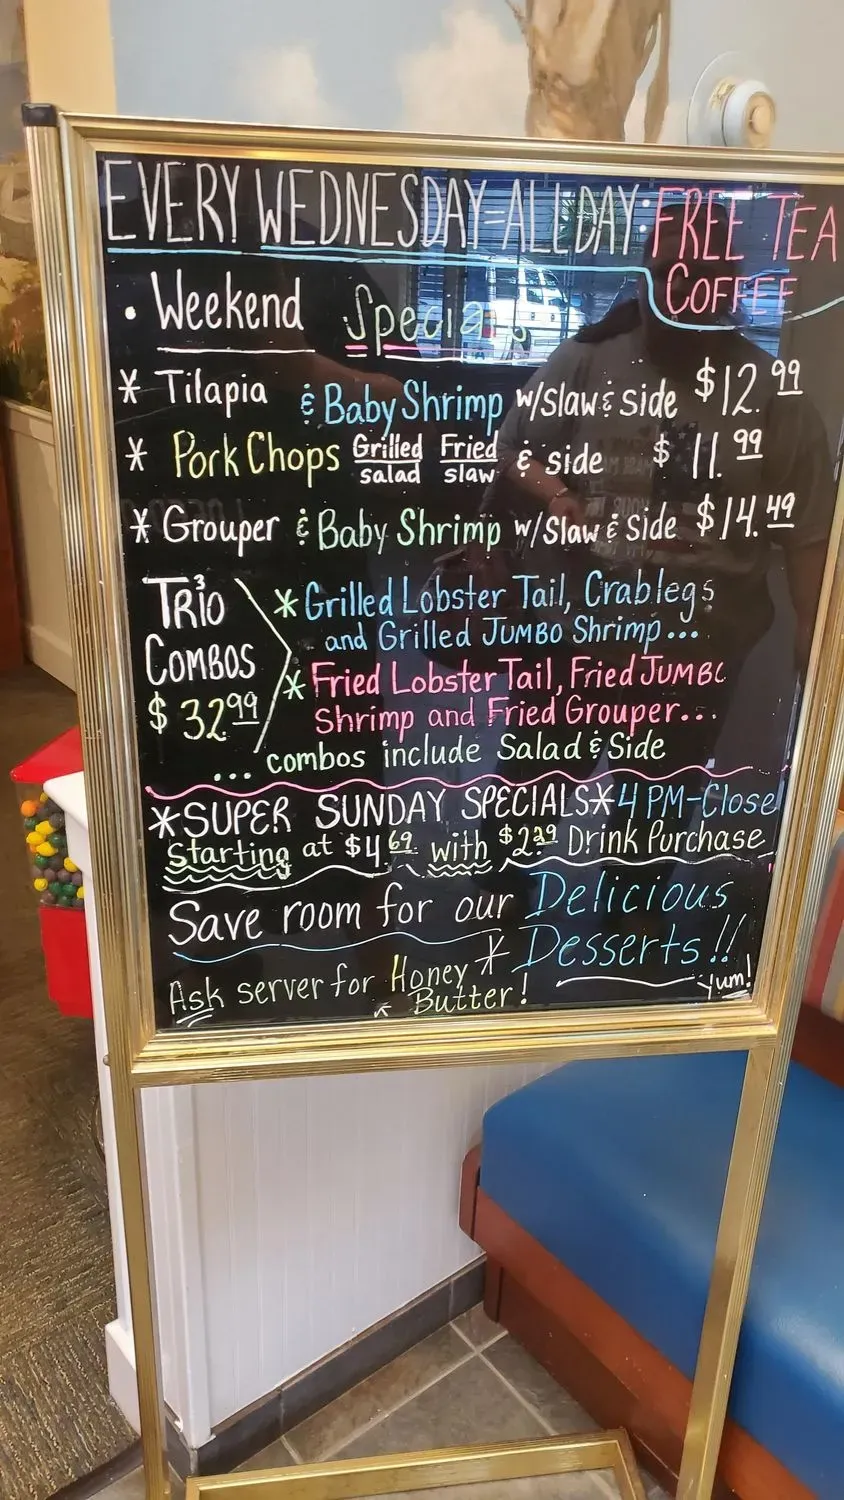 EVERY WEDNESDAY=ALL DAY FREE TEA
COFFEE
• Weekend Specials
* Tilapia & Baby Shrimp w/Slaw & side $12.99
* Pork Chops Grilled salad Fried slaw & side $11.99
* Grouper & Baby Shrimp w/Slaw & side $14.49
TRIO COMBOS $32.99
* Grilled Lobster Tail, Crablegs
and Grilled JUMBO Shrimp...
* Fried Lobster Tail, Fried JUMBO
Shrimp and Fried Grouper...
... combos include Salad & Side
*SUPER SUNDAY SPECIALS* 4 PM-Close
Starting at $4.69 with $2.29 Drink Purchase
Save room for our Delicious
* Desserts!!
Yum!
Ask server for Honey
Butter!